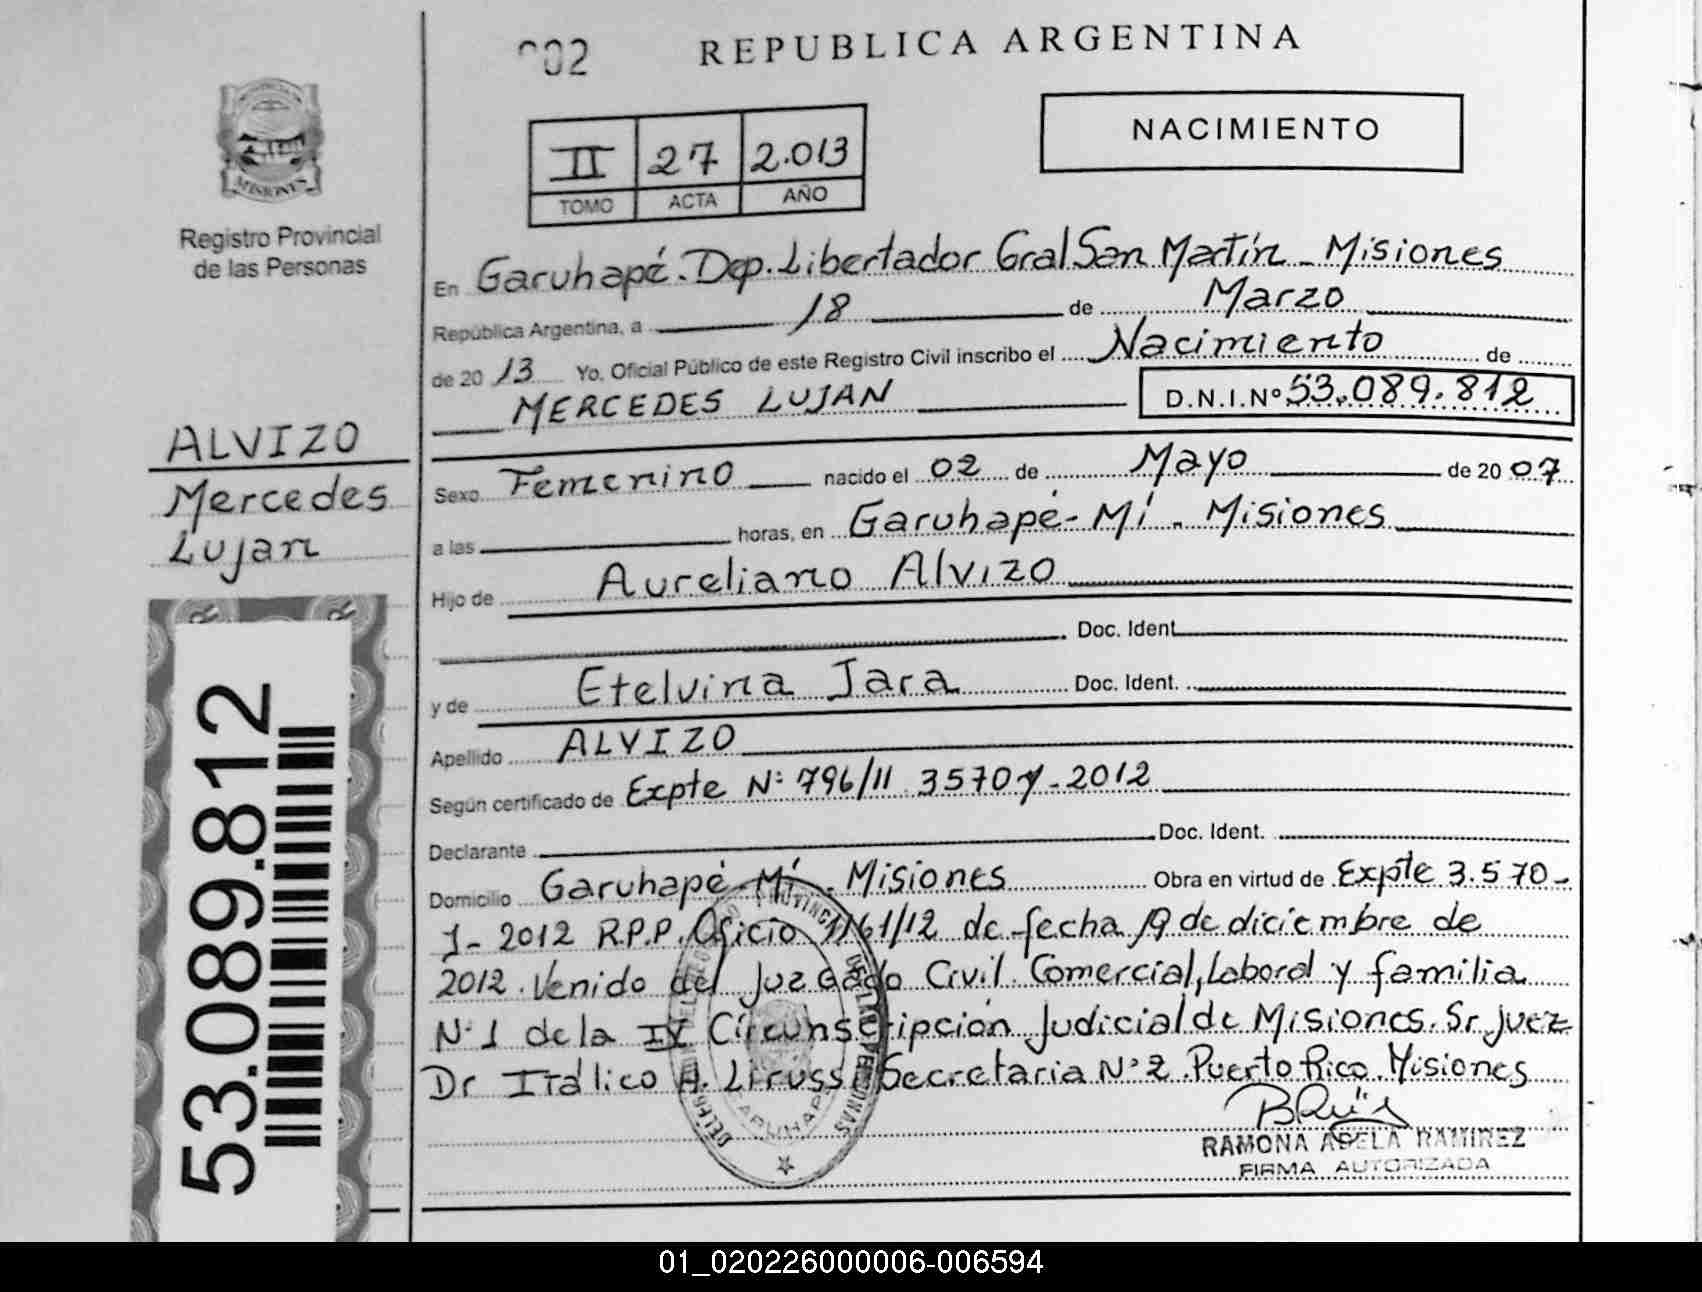 002 REPUBLICA ARGENTINA
NACIMIENTO
II 27 2.013
TOMO ACTA AÑO
MISIONES
Registro Provincial
de las Personas
En Garuhapé. Dep. Libertador Gral San Martín - Misiones
República Argentina, a 18 de Marzo
de 20 13 Yo, Oficial Público de este Registro Civil inscribo el Nacimiento de
MERCEDES LUJAN D.N.I.Nº 53.089.812
ALVIZO
Mercedes
Lujan
Sexo Femenino nacido el 02 de Mayo de 20 07
a las horas, en Garuhapé - Mí. Misiones
Hijo de Aureliano Alvizo
Doc. Ident.
y de Etelvina Jara Doc. Ident.
Apellido ALVIZO
Según certificado de Expte Nº 796/11 3570 - 2012
Declarante Doc. Ident.
Domicilio Garuhapé - Mí. Misiones Obra en virtud de Expte 3.570-
1- 2012 R.P.P. Oficio /12 de fecha 19 de diciembre de
2012. Venido del Juzgado Civil. Comercial, Laboral y familia
Nº 1 de la IV Circunscripción Judicial de Misiones. Sr. Juez
Dr Itálico A. Secretaria Nº 2. Puerto Rico. Misiones
RAMONA ADELA RAMIREZ
FIRMA AUTORIZADA
GARUHAPE
53.089.812
01_020226000006-006594